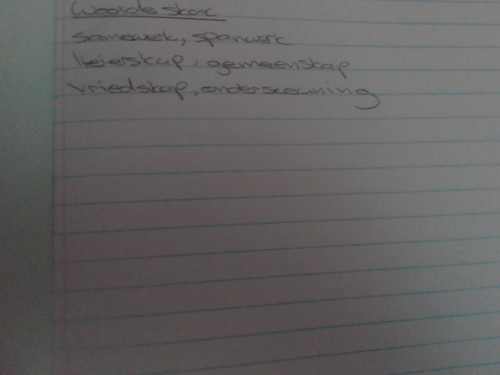 Woorde skat
samewerk, spanwerk
lieierskap, gemeenskap
vriedskap, onderskeuning